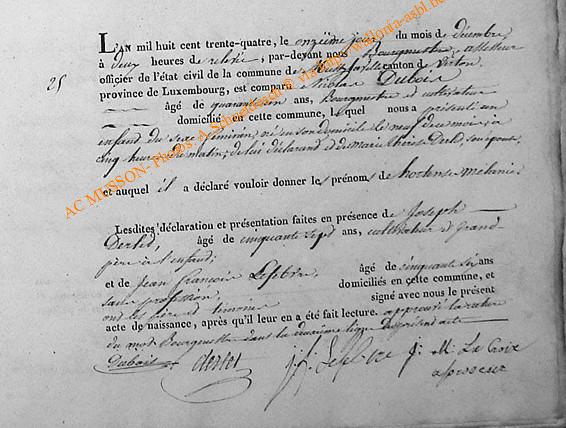 25
L'AN mil huit cent trente-quatre, le onzième jour du mois de décembre
à deux heures de relevée, par-devant nous Bourgmestre, assesseur
officier de l'état civil de la commune de canton de Virton,
province de Luxembourg, est comparu Nicolas Dubois
âgé de ans, Bourgmestre et cultivateur
domicilié en cette commune, lequel nous a présenté un
enfant du sexe féminin, né en son domicile le neuf du mois, à
cinq heures du matin; de lui déclarant et de Marie Thérèse son épouse,
et auquel il a déclaré vouloir donner les prénoms de hortense mélanie
Lesdites déclaration et présentation faites en présence de Joseph
âgé de cinquante sept ans, cultivateur et grand
père à l'enfant;
et de Jean François Lefebvre, âgé de cinquante six ans
sans profession, domiciliés en cette commune, et
ont les père et témoins signé avec nous le présent
acte de naissance, après qu'il leur en a été fait lecture. approuvé la rature
du mot Bourgmestre dans la deuxième ligne du présent acte
Dubois J. M. La Croix
assesseur
AC MUSSON- Photos: A. Schmickrath © via http://www.floria-asbl.be